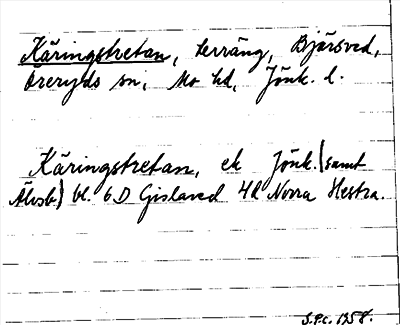 Käringstretan, terräng, Bjärsved,
Öreryds sn, Mo hd, Jönk. l.
Käringstretan, ek Jönk. (samt
Älvsb.) bl. 6D Gislaved 4d Norra Hestra.
S.P.C. 1958.